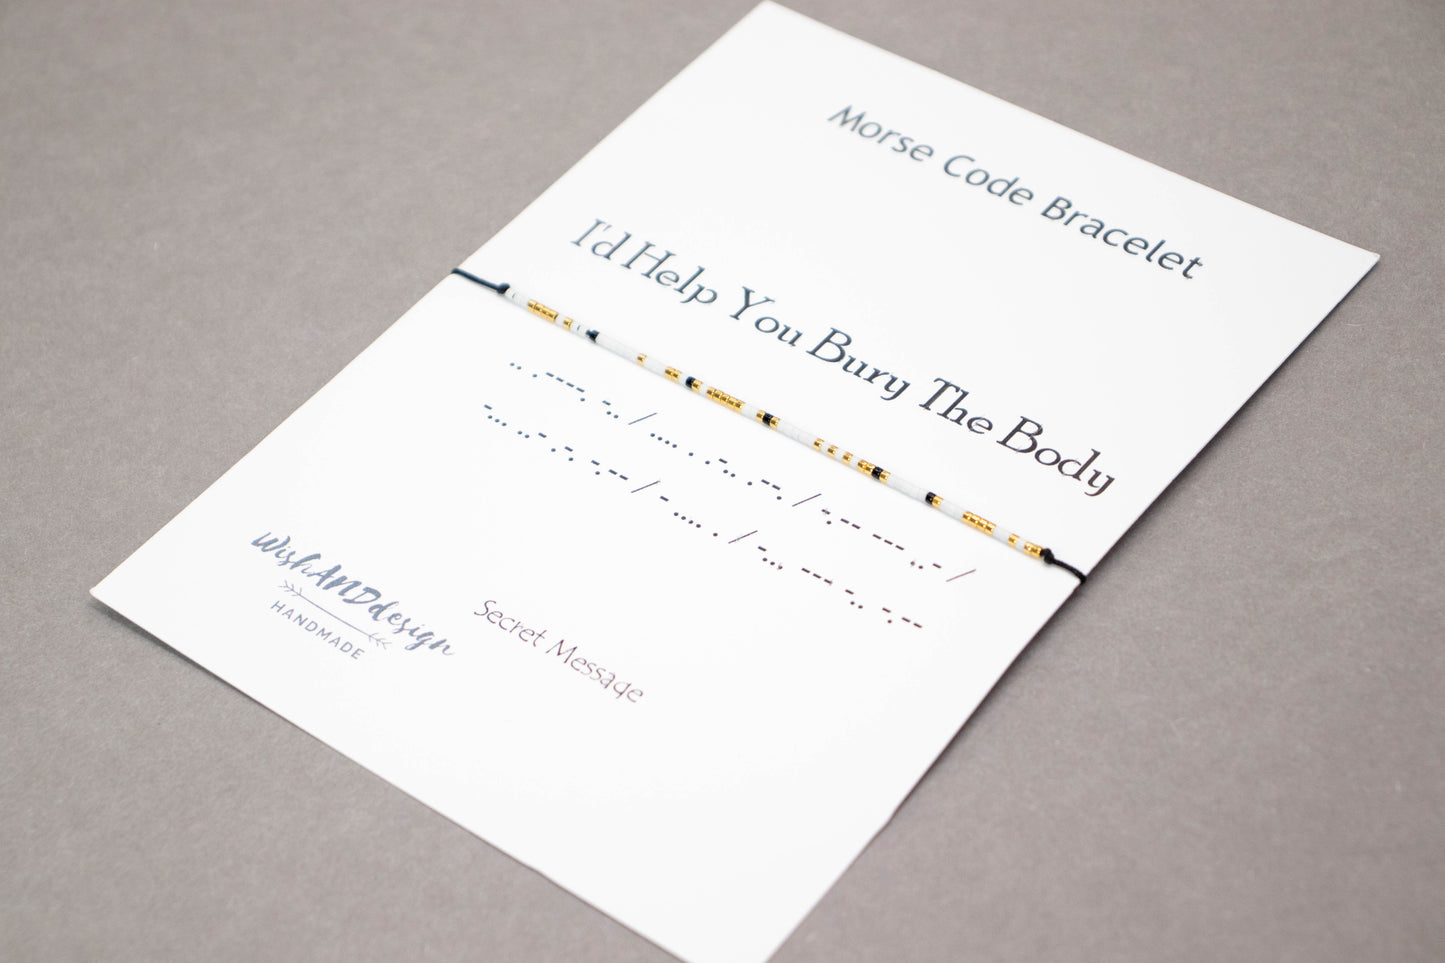 Morse Code Bracelet
I'd Help You Bury The Body
.. .----. -.. / .... . .-.. .--. / -.-- --- ..- /
-... ..- .-. -.-- / - .... . / -... --- -.. -.--
WishANDdesign
HANDMADE
Secret Message